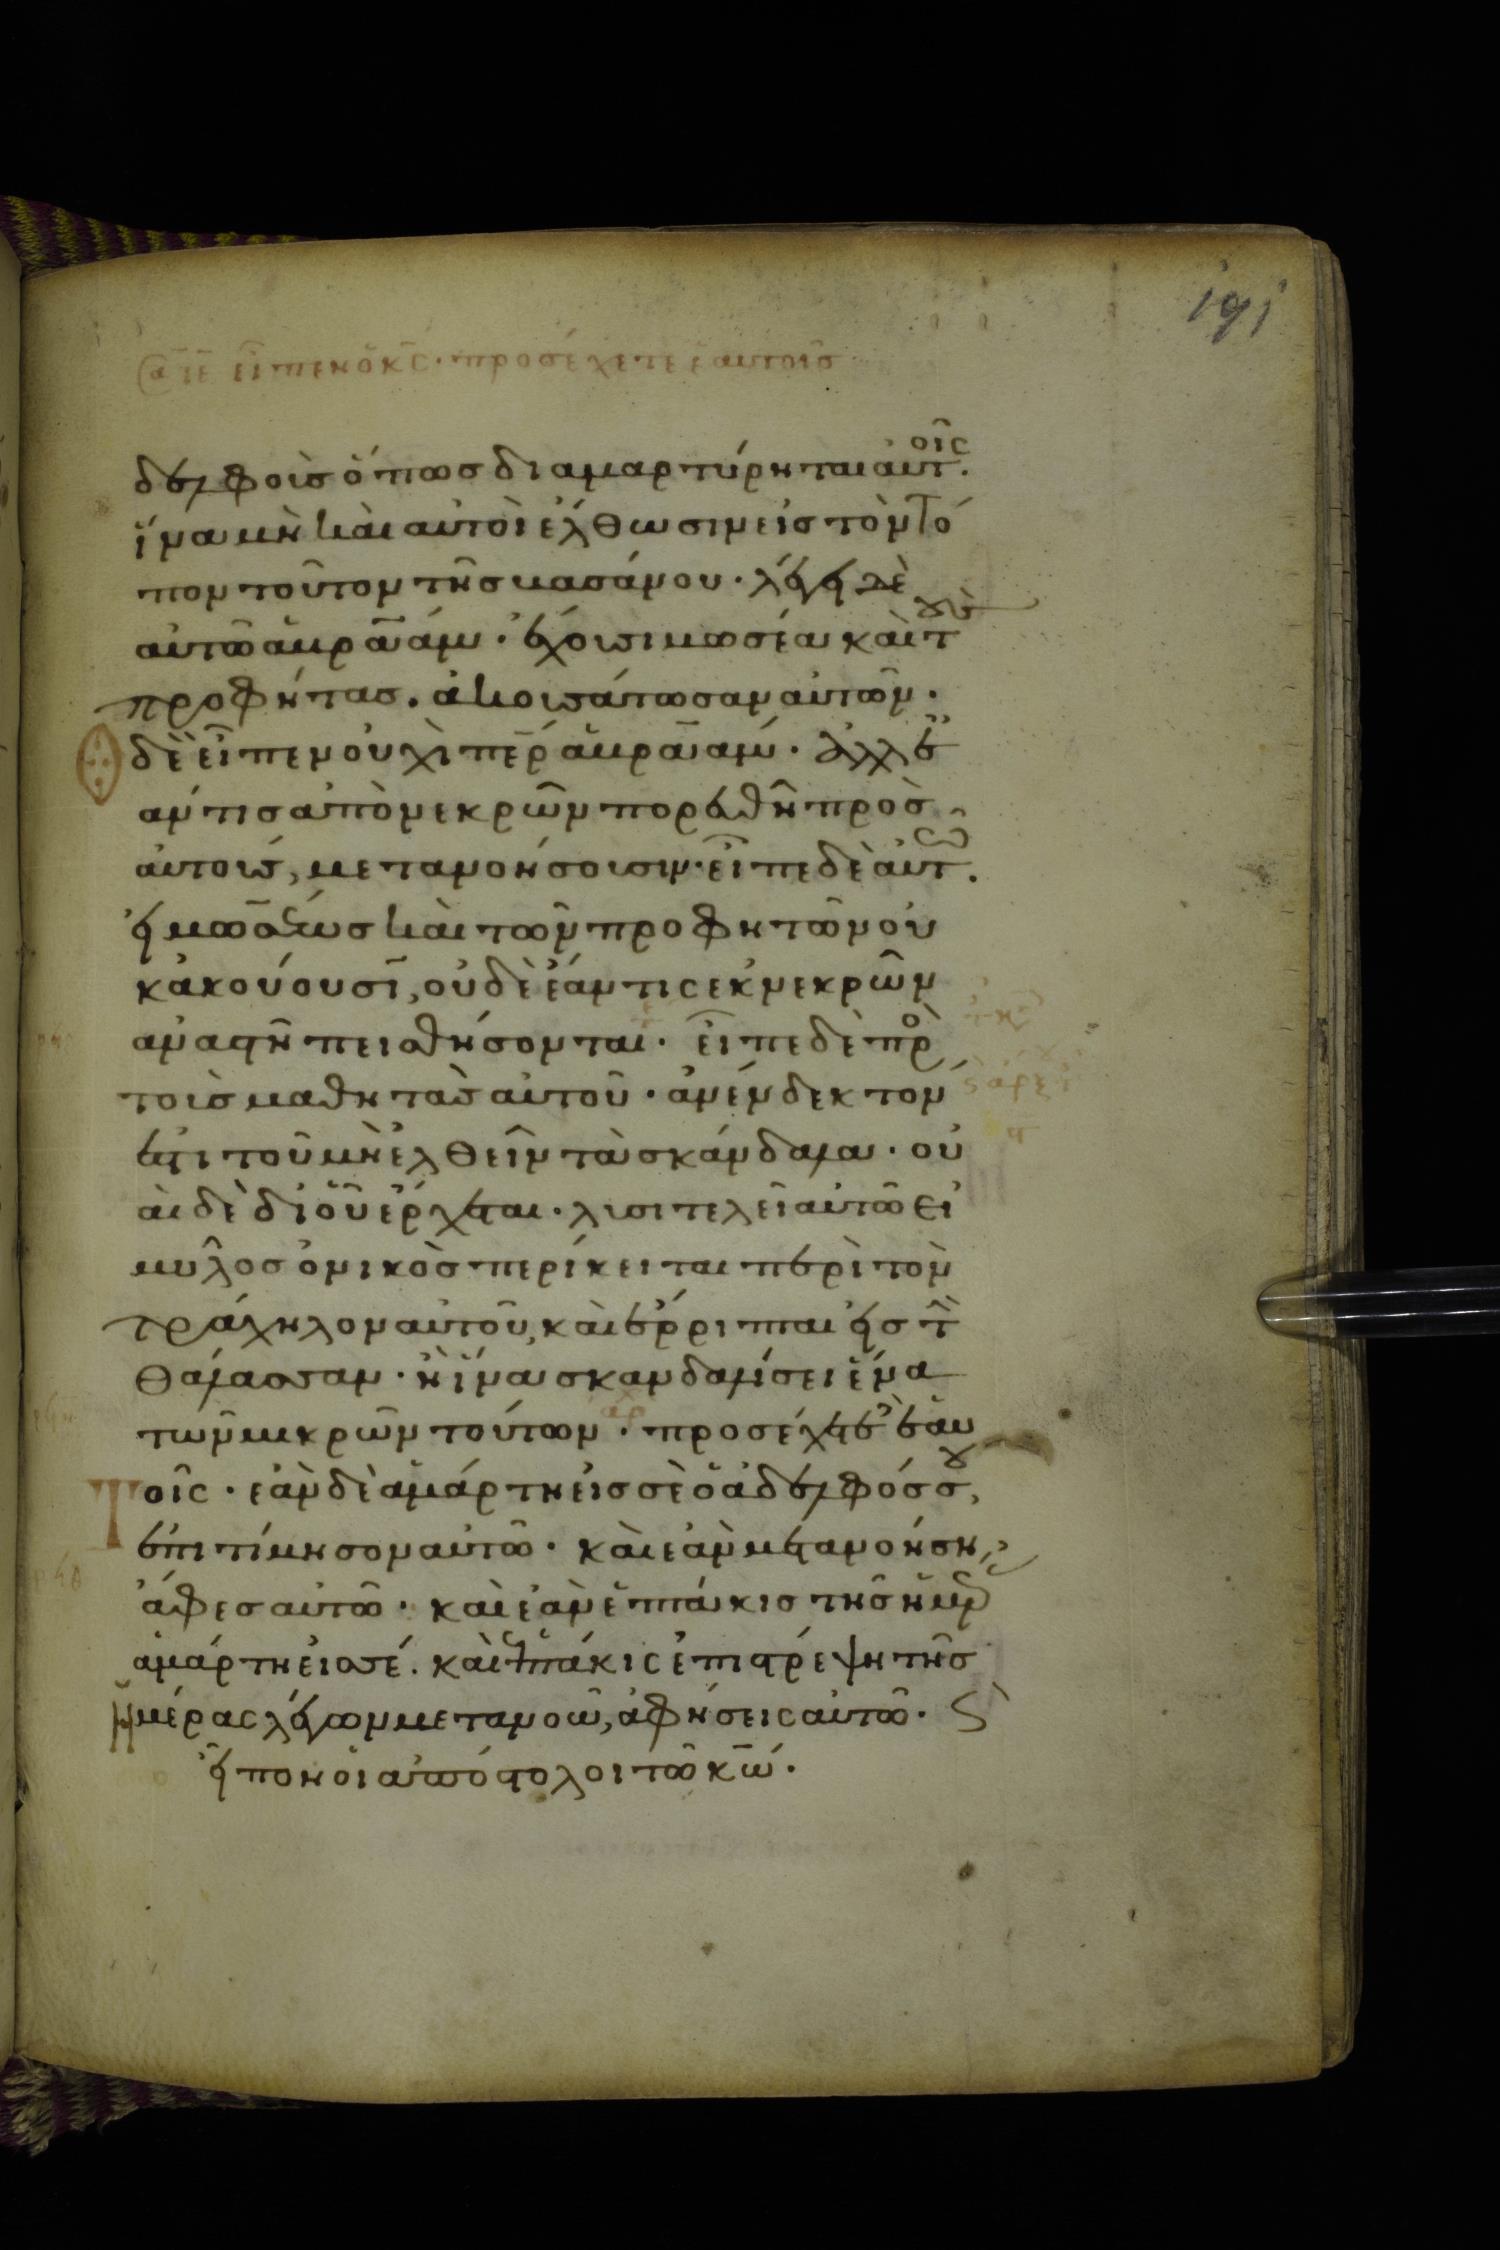 191
ιε εἶπεν ὁ κς̅· προσέχετε ἑαυτοῖς
δελφοὺς ὅπως διαμαρτύρηται αὐτοῖς.
ἵνα μὴ καὶ αὐτοὶ ἐλθωσιν εἰς τὸν τό
πον τοῦτον τῆς βασάνου· λέγει δὲ
αὐτῶ ἀβραάμ· ἔχουσι μωσέα καὶ τοὺς
προφήτας. ἀκουσάτωσαν αὐτῶν·
ὁ δὲ εἶπεν οὐχὶ περ ἀβραάμ· ἀλλ' ἐ
άν τις ἀπὸ νεκρῶν πορευθῆ πρὸς
αὐτούς, μετανοήσουσιν· εἶπε δὲ αὐτῶ.
εἰ μωσέως καὶ τῶν προφητῶν οὐ
κ ἀκούουσῑ, οὐδὲ ἐάν τις ἐκ νεκρῶν
ἀναστῆ πεισθήσονται· εἶπε δὲ πρὸ
τοὺς μαθητὰς αὐτοῦ· ἀνένδεκτόν
ἐστι τοῦ μὴ ἐλθεῖν τὰ σκάνδαλα· οὐ
αὶ δὲ δι' οὗ ἔρχεται· λυσιτελεῖ αὐτῶ εἰ
μύλος ὀνικὸς περίκειται περὶ τὸν
τράχηλον αὐτοῦ, καὶ ἔρριπται εἰς τὴ
θάλασσαν· ἢ ἵνα σκανδαλίσει ἕνα
τῶν μικρῶν τούτων· προσέχετε ἑαυ
τοῖς· ἐὰν δὲ ἁμάρτη εἰς σὲ ὁ ἀδελφός σου,
ἐπιτίμησον αὐτῶ· καὶ ἐὰν μετανοήση,
ἄφες αὐτῶ· καὶ ἐὰν ἑπτάκις τῆς ἡμρ
ἁμάρτη εἰς σέ. καὶ ἑπτάκις ἐπιστρέψη τῆς
ἡμέρας λέγων μετανοῶ, ἀφήσεις αὐτῶ· ϛ
εἶπον οἱ ἀπόστολοι τῶ κω̅.